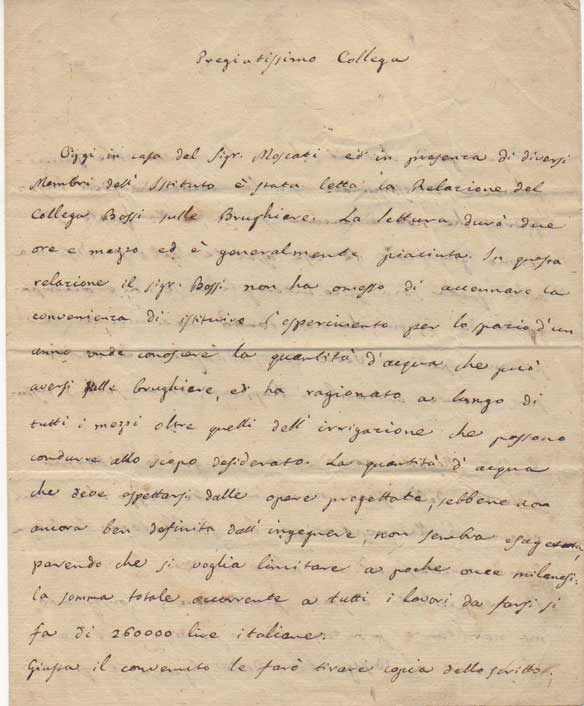 Pregiatissimo Collega
Oggi in casa del Sigr. Moscati ed in presenza di diversi
Membri dell' Istituto è stata letta la Relazione del
Collega Bossi sulle Brughiere. La lettura durò due
ore e mezzo ed è generalmente piaciuta. In questa
relazione il Sigr. Bossi non ha omesso di accennare la
convenienza di istituire l'esperimento per lo spazio d'un
anno onde conoscere la quantità d'acqua che può
aversi sulle brughiere, ed ha ragionato a lungo di
tutti i mezzi oltre quelli dell' irrigazione che possono
condurre allo scopo desiderato. La quantità d'acqua
che deve aspettarsi dalle opere progettate, sebbene non
ancora ben definita dall' ingegnere, non sembra esagerata,
parendo che si voglia limitare a poche once milanesi:
la somma totale occorrente a tutti i lavori da farsi si
fa di 260000 lire italiane.
Giusta il convenuto le farò tirare copia dello scritto;